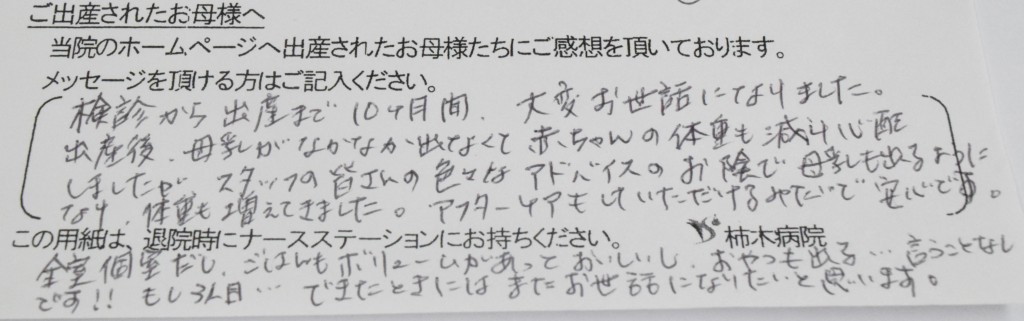 ご出産されたお母様へ
当院のホームページへ出産されたお母様たちにご感想を頂いております。
メッセージを頂ける方はご記入ください。
検診から出産まで10ヶ月間、大変お世話になりました。
出産後、母乳がなかなか出なくて赤ちゃんの体重も減り心配
しましたが、スタッフの皆さんの色々なアドバイスのお陰で母乳も出るように
なり、体重も増えてきました。アフターケアもしていただけるみたいで安心です。
この用紙は、退院時にナースステーションにお持ちください。 柿木病院
全室個室だし、ごはんもボリュームがあっておいしいし、おやつも出る…言うことなし
です!! もし3人目…できたときにはまたお世話になりたいと思います。